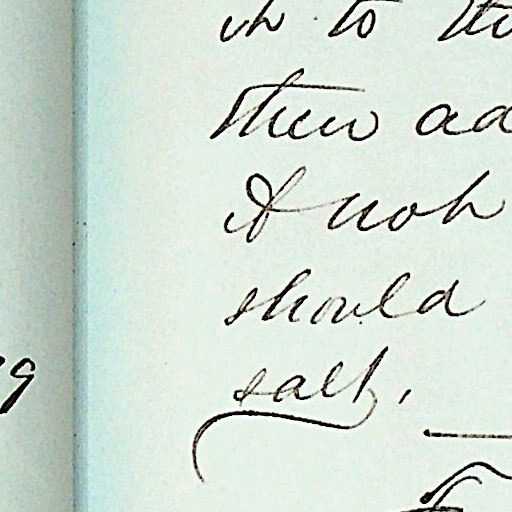 it to the
then ad
If not
should
salt,